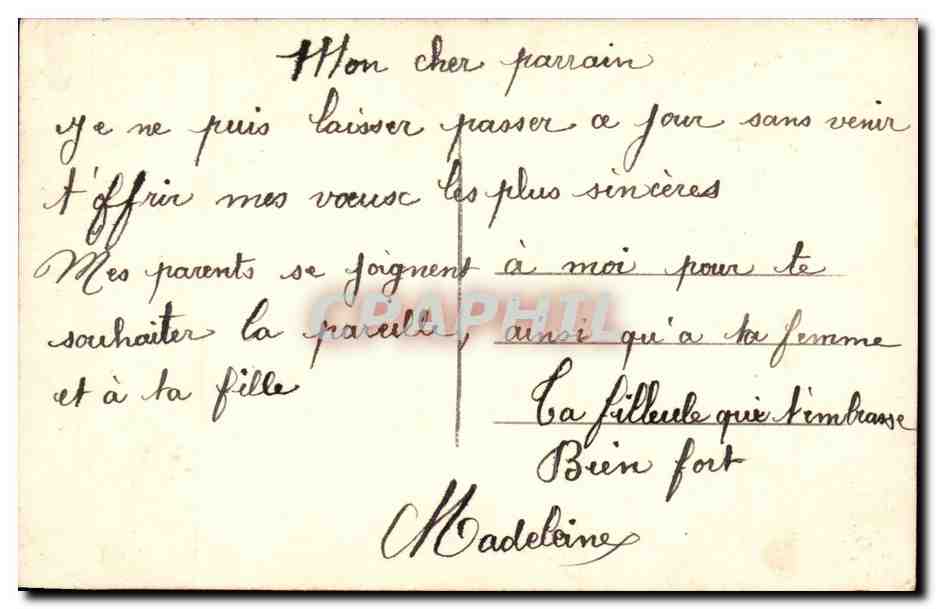 Mon cher parrain
Je ne puis laisser passer ce jour sans venir
t'offrir mes vœux les plus sincères
Mes parents se joignent à moi pour te
souhaiter la pareille, ainsi qu'a ta femme
et à ta fille
Ta filleule qui t'embrasse
Bien fort
Madeleine
CPAPHIL